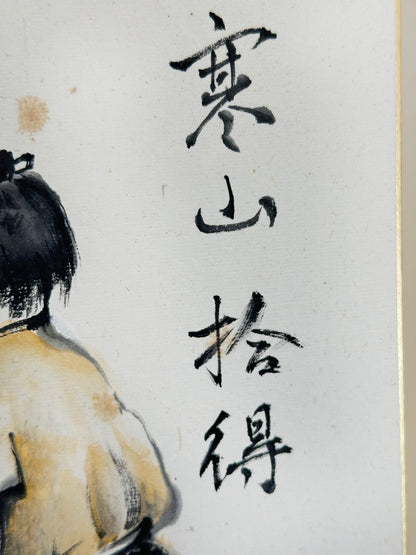 寒山拾得